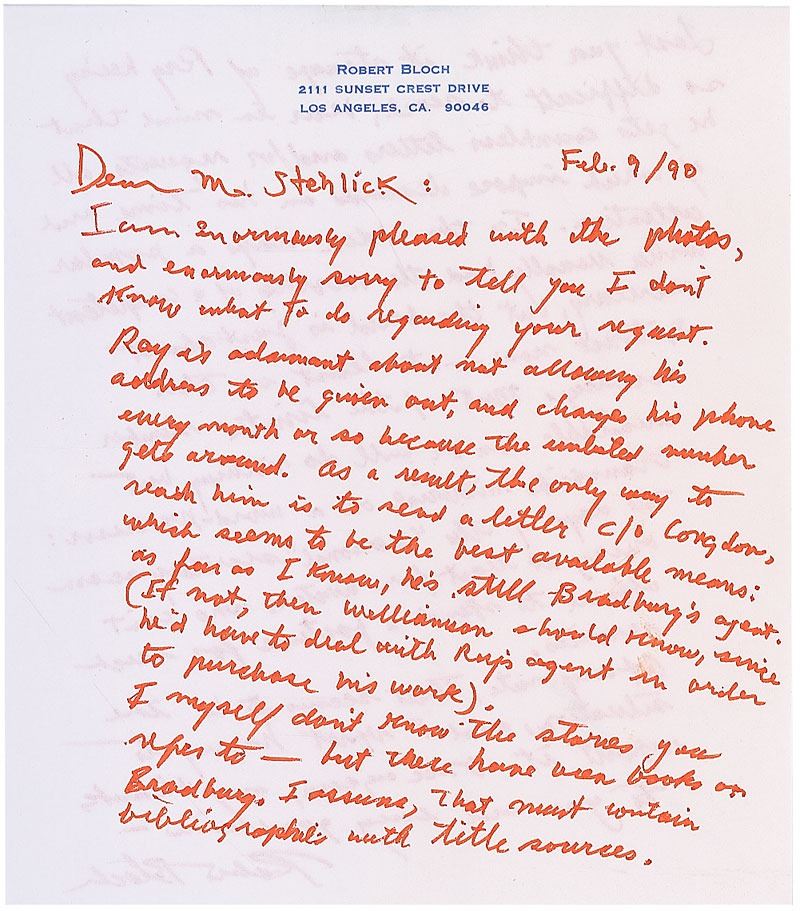 ROBERT BLOCH
2111 SUNSET CREST DRIVE
LOS ANGELES, CA. 90046
Feb. 9/90
Dear Mr. Stehlick:
I am enormously pleased with the photos,
and enormously sorry to tell you I don't
know what to do regarding your request.
Ray is adamant about not allowing his
address to be given out, and changes his phone
every month or so because the unlisted number
gets around. As a result, the only way to
reach him is to send a letter c/o Congdon,
which seems to be the best available means:
as far as I know, he's still Bradbury's agent.
(If not, then Williamson should know, since
he'd have to deal with Ray's agent in order
to purchase his work).
I myself don't know the stories you
refer to — but there have been books on
Bradbury, I assume, that must contain
bibliographies with title sources.